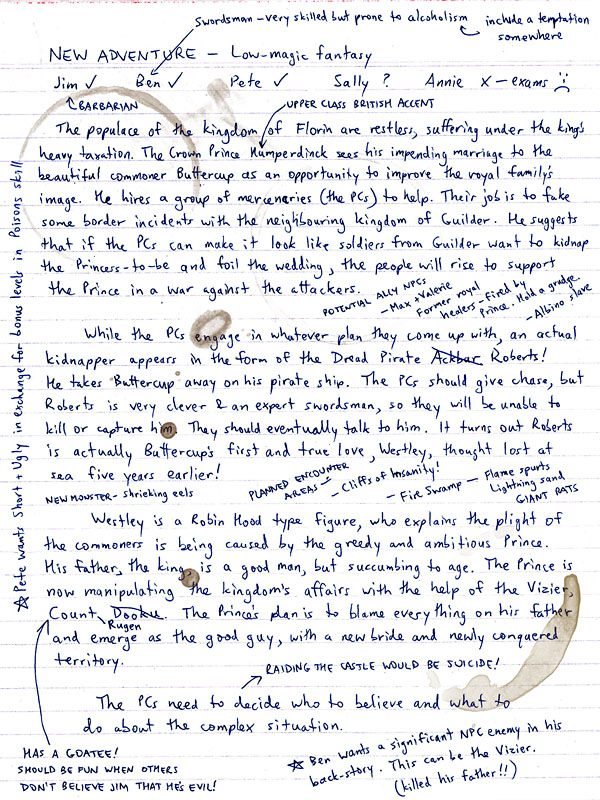 Swordsman – very skilled but prone to alcoholism
include a temptation
somewhere
NEW ADVENTURE – Low-magic fantasy
Jim ✓ Ben ✓ Pete ✓ Sally ? Annie X – exams ☹
BARBARIAN
UPPER CLASS BRITISH ACCENT
The populace of the kingdom of Florin are restless, suffering under the king's
heavy taxation. The Crown Prince Humperdinck sees his impending marriage to the
beautiful commoner Buttercup as an opportunity to improve the royal family's
image. He hires a group of mercenaries (the PCs) to help. Their job is to fake
some border incidents with the neighbouring kingdom of Guilder. He suggests
that if the PCs can make it look like soldiers from Guilder want to kidnap
the Princess-to-be and foil the wedding, the people will rise to support
the Prince in a war against the attackers.
POTENTIAL ALLY NPCs
– Max + Valerie
Former royal
healers – fired by
Prince. Hold a grudge.
– Albino slave
While the PCs engage in whatever plan they come up with, an actual
kidnapper appears in the form of the Dread Pirate Ackbar Roberts!
He takes Buttercup away on his pirate ship. The PCs should give chase, but
Roberts is very clever & an expert swordsman, so they will be unable to
kill or capture him. They should eventually talk to him. It turns out Roberts
is actually Buttercup's first and true love, Westley, thought lost at
sea five years earlier!
NEW MONSTER – shrieking eels
PLANNED ENCOUNTER
AREAS
– Cliffs of Insanity!
– Fire Swamp – Flame spurts
Lightning sand
GIANT RATS
Westley is a Robin Hood type figure, who explains the plight of
the commoners is being caused by the greedy and ambitious Prince.
His father, the king, is a good man, but succumbing to age. The Prince is
now manipulating the kingdom's affairs with the help of the Vizier,
Count Dooku. The Prince's plan is to blame everything on his father
Rugen
and emerge as the good guy, with a new bride and newly conquered
territory.
RAIDING THE CASTLE WOULD BE SUICIDE!
The PCs need to decide who to believe and what to
do about the complex situation.
HAS A GOATEE!
SHOULD BE FUN WHEN OTHERS
DON'T BELIEVE JIM THAT HE'S EVIL!
☆ Ben wants a significant NPC enemy in his
back-story. This can be the Vizier.
(killed his father!!)
☆ Pete wants Short + Ugly in exchange for bonus levels in Poisons skill